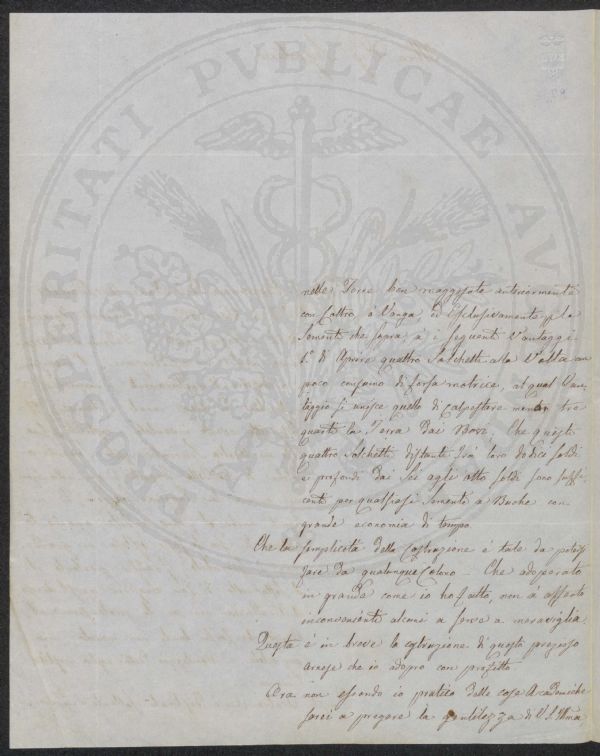 PROSPERITATI PVBLICAE AV
nelle Terre ben maggesate anteriormente
con Coltro, o Vanga ed Esclusivamente p. le
Sementi che sopra, à i seguenti Vantaggi.
1.º di Aprire quattro Solchetti alla Volta con
poco consumo di forza motrice, al qual Van-
taggio si unisce quello di calpestare men tre
quarti la Terra dai Bovi, Che questi
quattro Solchetti distanti Frà loro dodici soldi
e profondi dai Sei agli otto soldi sono suffi-
cienti per qualsiasi Semente a Buche con
grande economia di tempo
Che la semplicità della Costruzione è tale da potersi
fare da qualunque Colono – Che adoperato
in grande come io ho fatto, non à offerto
inconvenienti alcuni e serve a meraviglia.
Questa è in breve la costruzione di questo prezioso
Arnese che io adopro con profitto.
Ora non essendo io pratico delle cose Accademiche
sarei a pregare la gentilezza di V. S. Illma